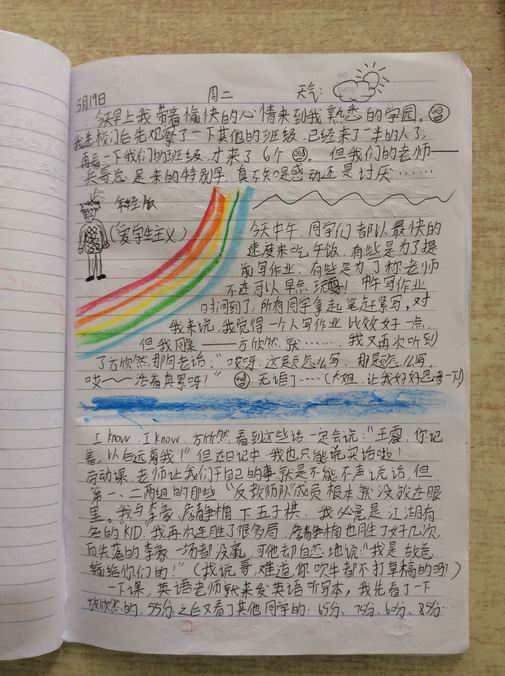 5月19日 周二 天气:
今天早上我带着愉快的心情来到我熟悉的学园。
我进校门后先观察了一下其他的班级,已经来了一半的人了,
再看一下我们的班级,才来了6个。但我们的老师——
兵哥总是来的特别早,真不知是感动还是讨厌……
年轻版
(爱学生主义)
今天中午,同学们都以最快的
速度来吃午饭,有些是为了提
前写作业,有些是为了
不迟可以早点玩!中午写作业
时间到了,所有同学拿起笔赶紧写,对
我来说,我觉得一个人写作业比效好一点,
但我同桌——方欣然就……我又再次听到
了方欣然那句老话:“哎呀,这题怎么写,那题怎么写,
哎——活着真累呀!”无语了……(大姐,让我好好思考一下)
I know,I know,方欣然,看到这些话一定会说:“王震,你记
着,以后远离我!”但在日记中,我也只能说实话啦!
劳动课,老师让我们干自己的事,就是不能不声说话,但
第一、二两组的那些“反教师队成员根本就没放在眼
里。我与李豪、詹静楠下五子棋,我必竟是江湖有
名的KID,我再次连胜了很多局,詹静楠也胜了好几次,
而失落的李豪一场都没赢,可他却自恋地说:“我是故意
输给你们的!”(我说哥,难道你吹牛都不打草稿的吗!)
一下课,英语老师就来发英语听写本,我先看了一下
方欣然的,55分,之后又看了其他同学的:65分、75分、60分、85分…